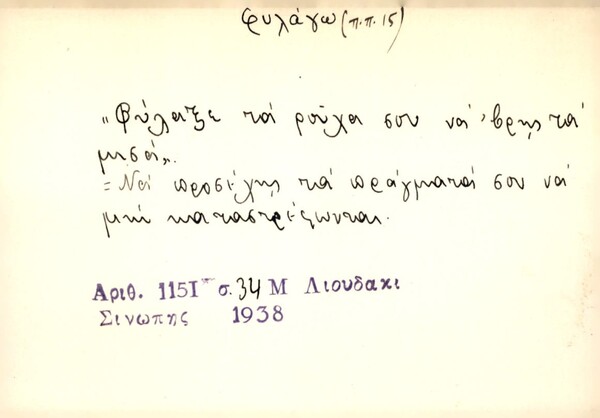 φυλάγω (π.π. 15)
„Φύλαξε τά ρούχα σου νά 'βρης τά
μισά„.
= Νά προσέχης τά πράγματά σου νά
μή καταστρέφωνται.
Αριθ. 1151 σ. 34 Μ Λιουδακι
Σινωπης 1938